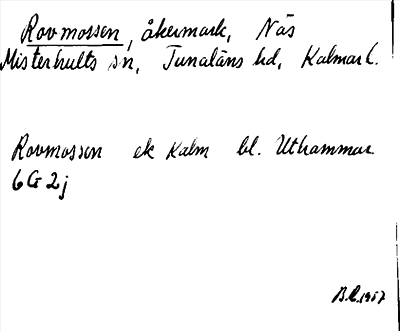 Rovmossen, åkermark, Näs
Misterhults sn, Tunaläns hd, Kalmar l.
Rovmossen ek Kalm bl. Uthammar
6 G 2 j
1957